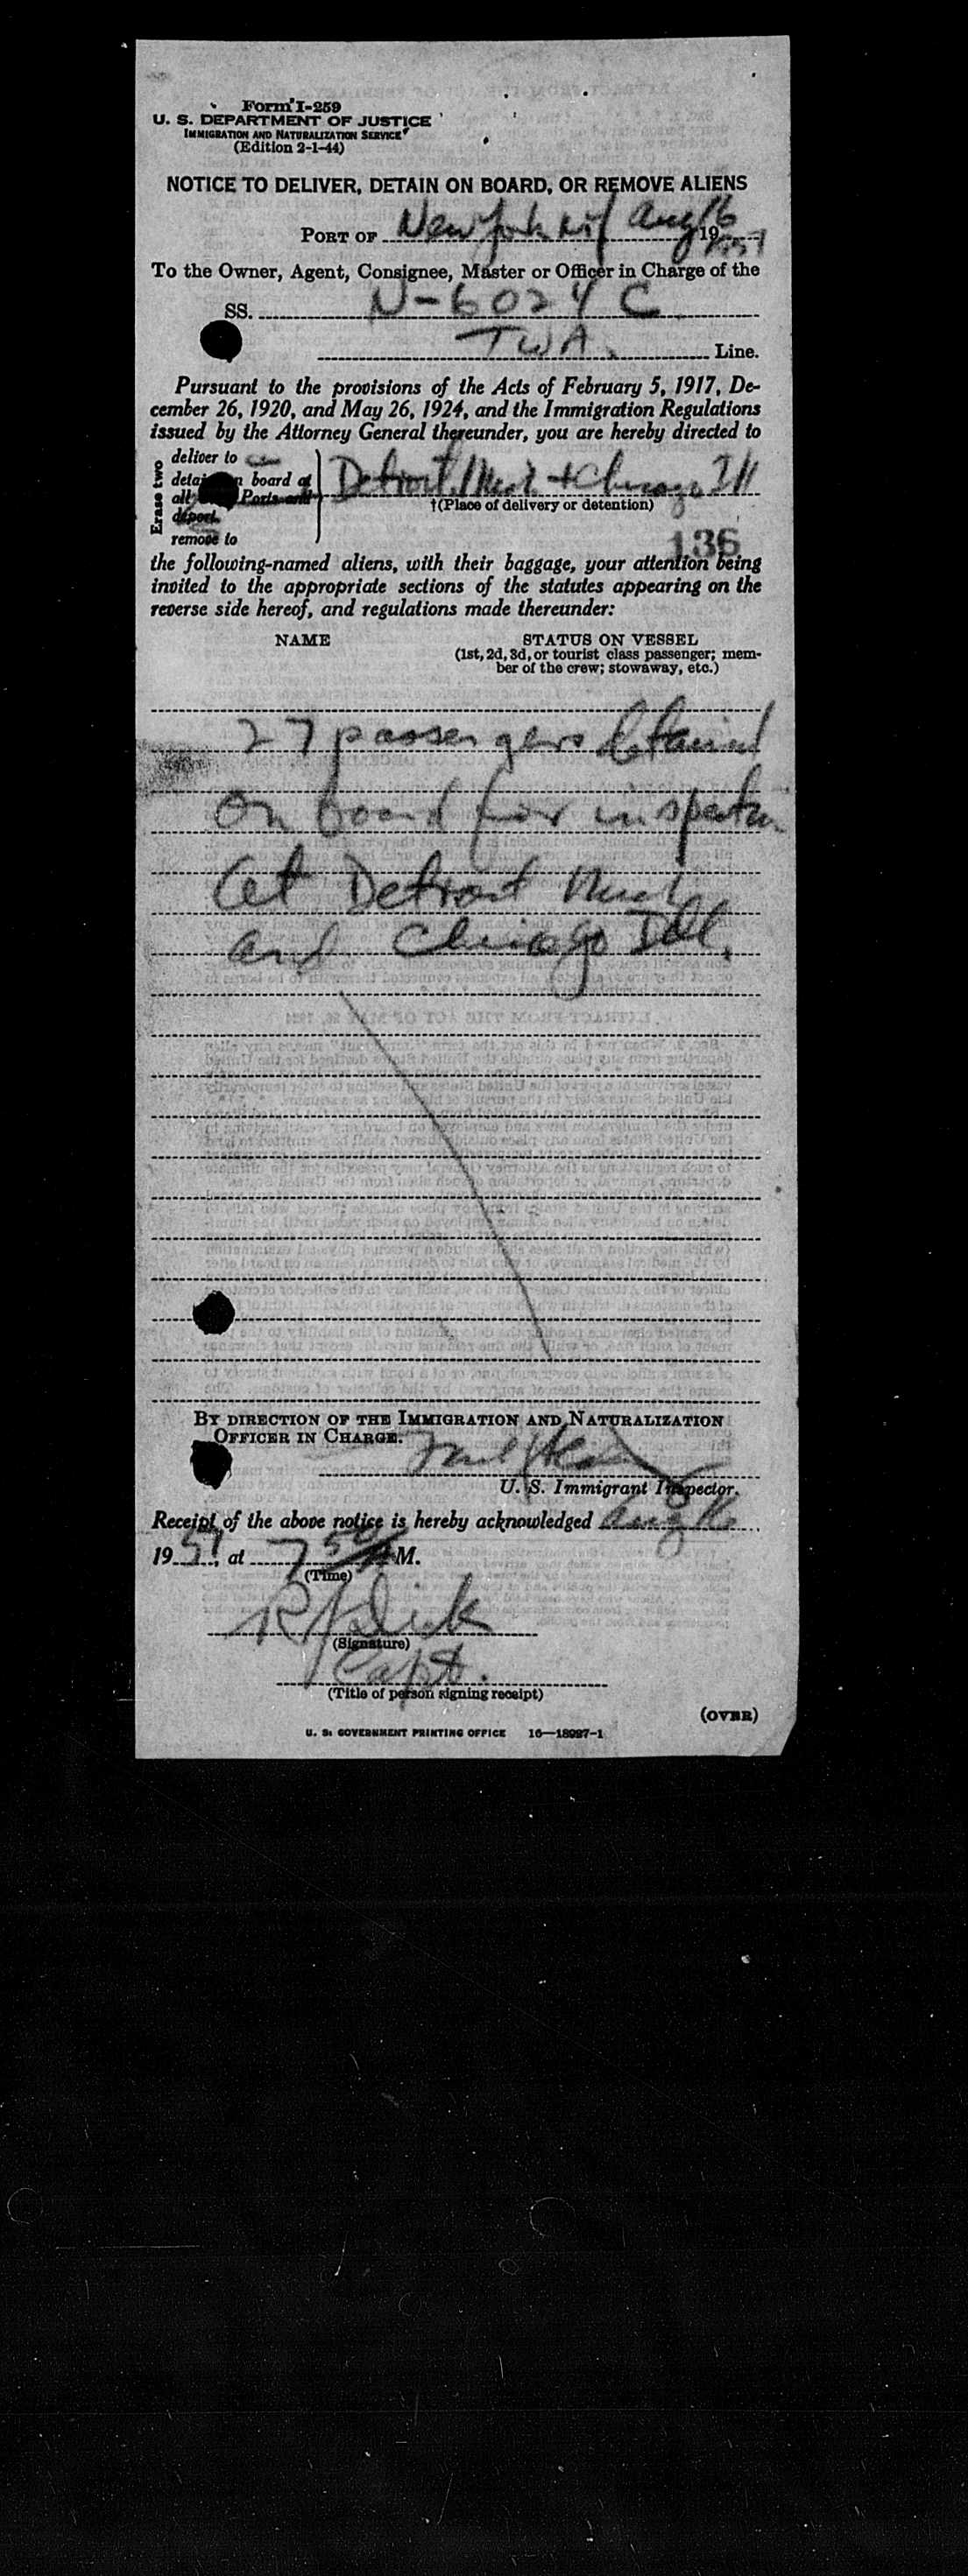 Form I-259
U. S. DEPARTMENT OF JUSTICE
IMMIGRATION AND NATURALIZATION SERVICE
(Edition 2-1-44)
NOTICE TO DELIVER, DETAIN ON BOARD, OR REMOVE ALIENS
PORT OF New York NY Aug 16 1957
To the Owner, Agent, Consignee, Master or Officer in Charge of the
SS. N-6024 C
TWA. Line.
Pursuant to the provisions of the Acts of February 5, 1917, De-
cember 26, 1920, and May 26, 1924, and the Immigration Regulations
issued by the Attorney General thereunder, you are hereby directed to
Erase two
deliver to
detain on board at Detroit, Mich + Chicago Ill
all Ports and †(Place of delivery or detention)
deport
remove to
136
the following-named aliens, with their baggage, your attention being
invited to the appropriate sections of the statutes appearing on the
reverse side hereof, and regulations made thereunder:
NAME STATUS ON VESSEL
(1st, 2d, 3d, or tourist class passenger; mem-
ber of the crew; stowaway, etc.)
27 passengers detained
on board for inspection
at Detroit Mich
and Chicago Ill.
BY DIRECTION OF THE IMMIGRATION AND NATURALIZATION
OFFICER IN CHARGE.
U. S. Immigrant Inspector.
Receipt of the above notice is hereby acknowledged Aug 16
1957, at 7 M.
(Time)
(Signature)
Capt.
(Title of person signing receipt)
(OVER)
U. S. GOVERNMENT PRINTING OFFICE 16—18997-1